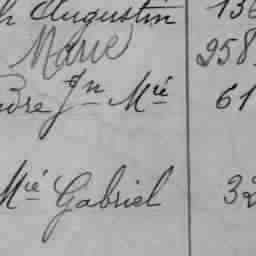 h Augustin 136
Marie 258
dre Jn Mié 61
Mié Gabriel 32